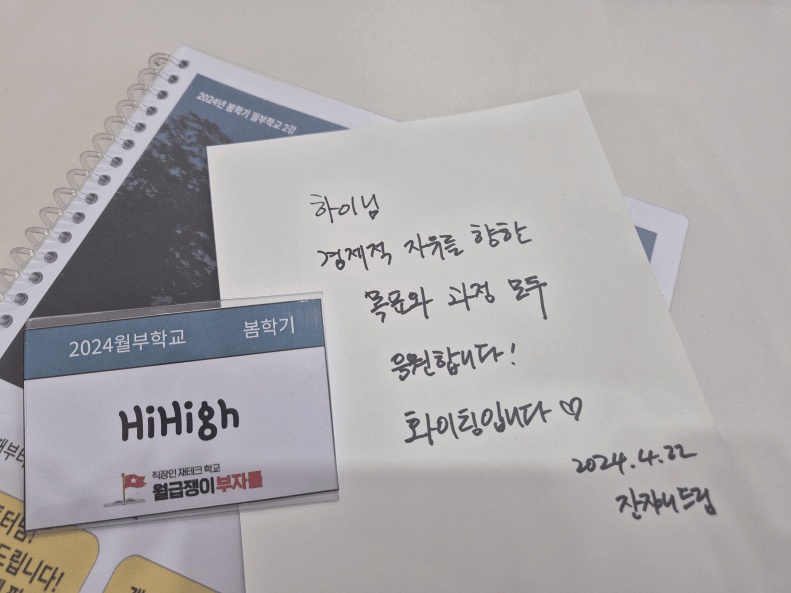 2024년 봄학기 월부학교 2강
하이님
경제적 자유를 향한
목표와 과정 모두
응원합니다!
화이팅입니다♡
2024.4.22
잔쟈니드림
2024월부학교 봄학기
HiHigh
직장인 재테크 학교
월급쟁이부자들
터님!
드립니다!